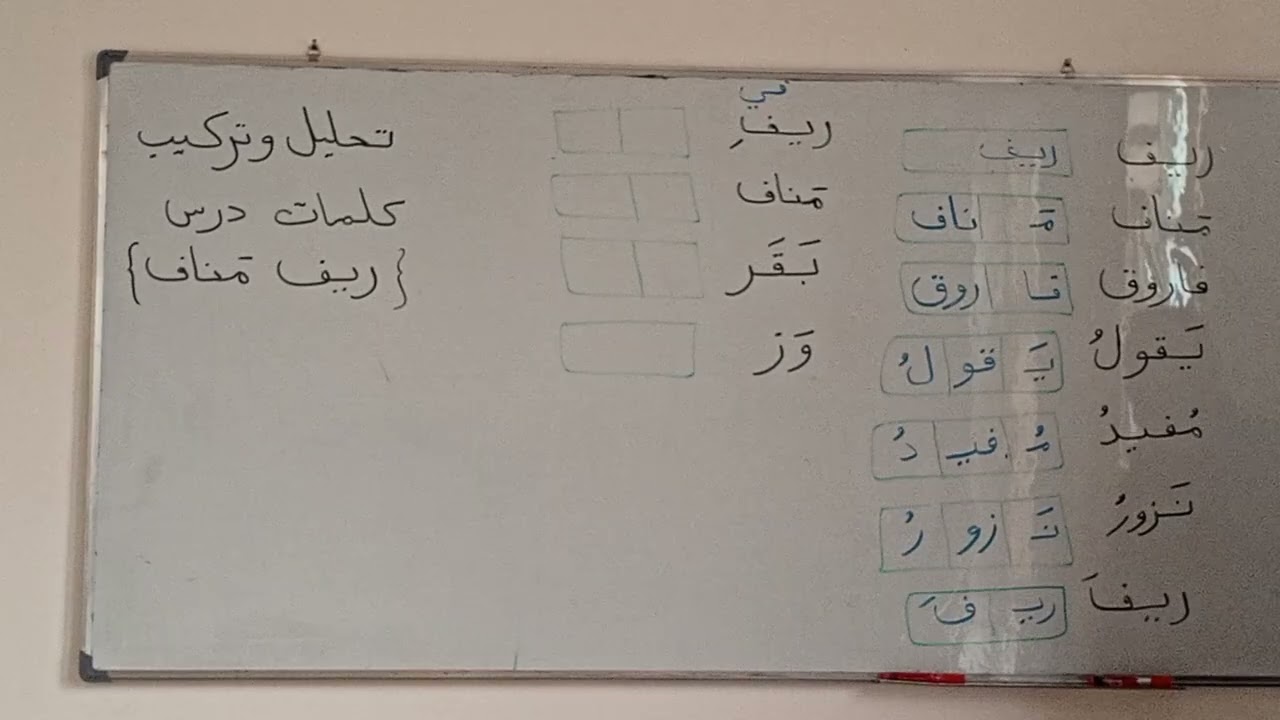 ريف ريف
مَناف مَـ ناف
فاروق فا روق
يَقولُ يَـ قو لُ
مُفيدُ مُـ فيـ دُ
نَزورُ نَـ زو رُ
ريفَ ريـ فَ
في
ريفِ
مَناف
بَقَر
وَز
تحليل وتركيب
كلمات درس
{ريف مَناف}